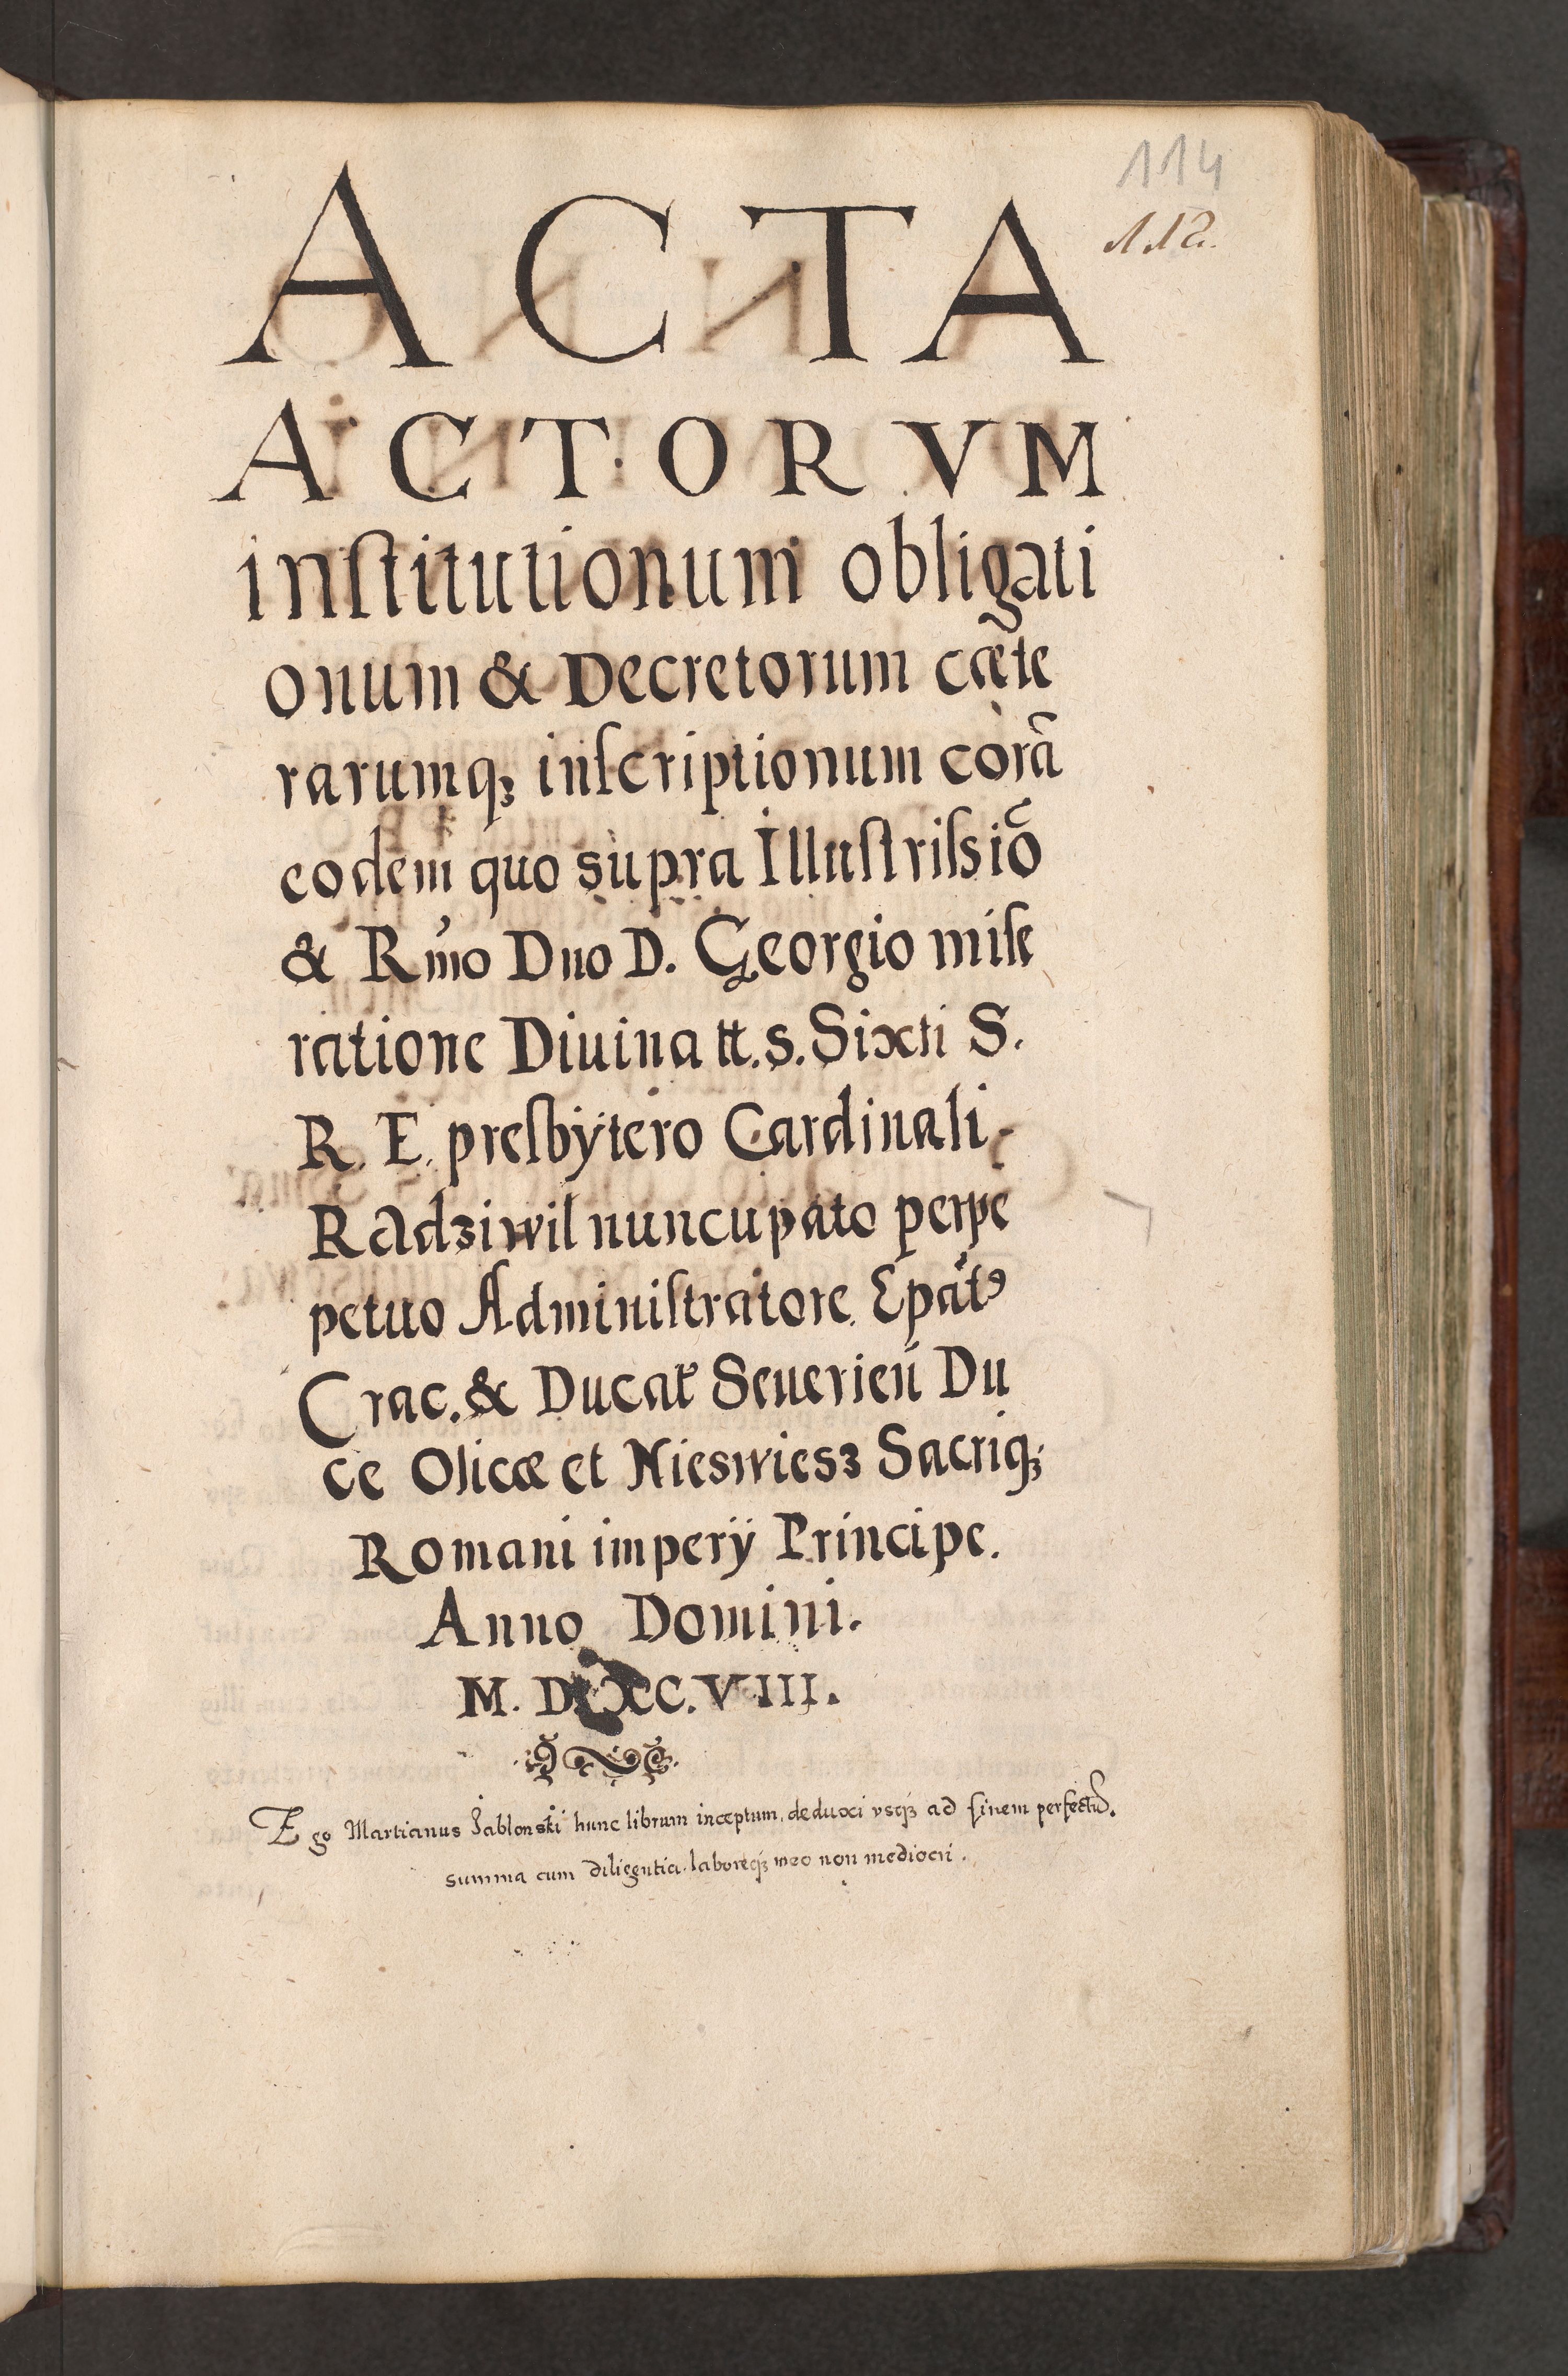 114
112.
ACTA
ACTORVM
inſtitutionum obligati
onum & Decretorum cæte
rarumqꝫ inſcriptionum corā
eodem quo supra Illuſtriſsiō
& Rm̃o Dno D. Georgio miſe
ratione Diuina tt. s. Sixti S.
R. E. presbÿtero Cardinali
Radziwil nuncupato perpe
petuo Adminiſtratore Epãtꝰ
Crac. & Ducat Seuerień Du
ce Olicæ et Nieswiesz Sacriqꝫ
Romani imperÿ Principe.
Anno Domini.
M. D. XC. VIII.
Ego Martianus Jablonski hunc librum inceptum, deduxi vsqꝫ ad finem perfectū.
summa cum diligentia laboreqꝫ meo non mediocri.